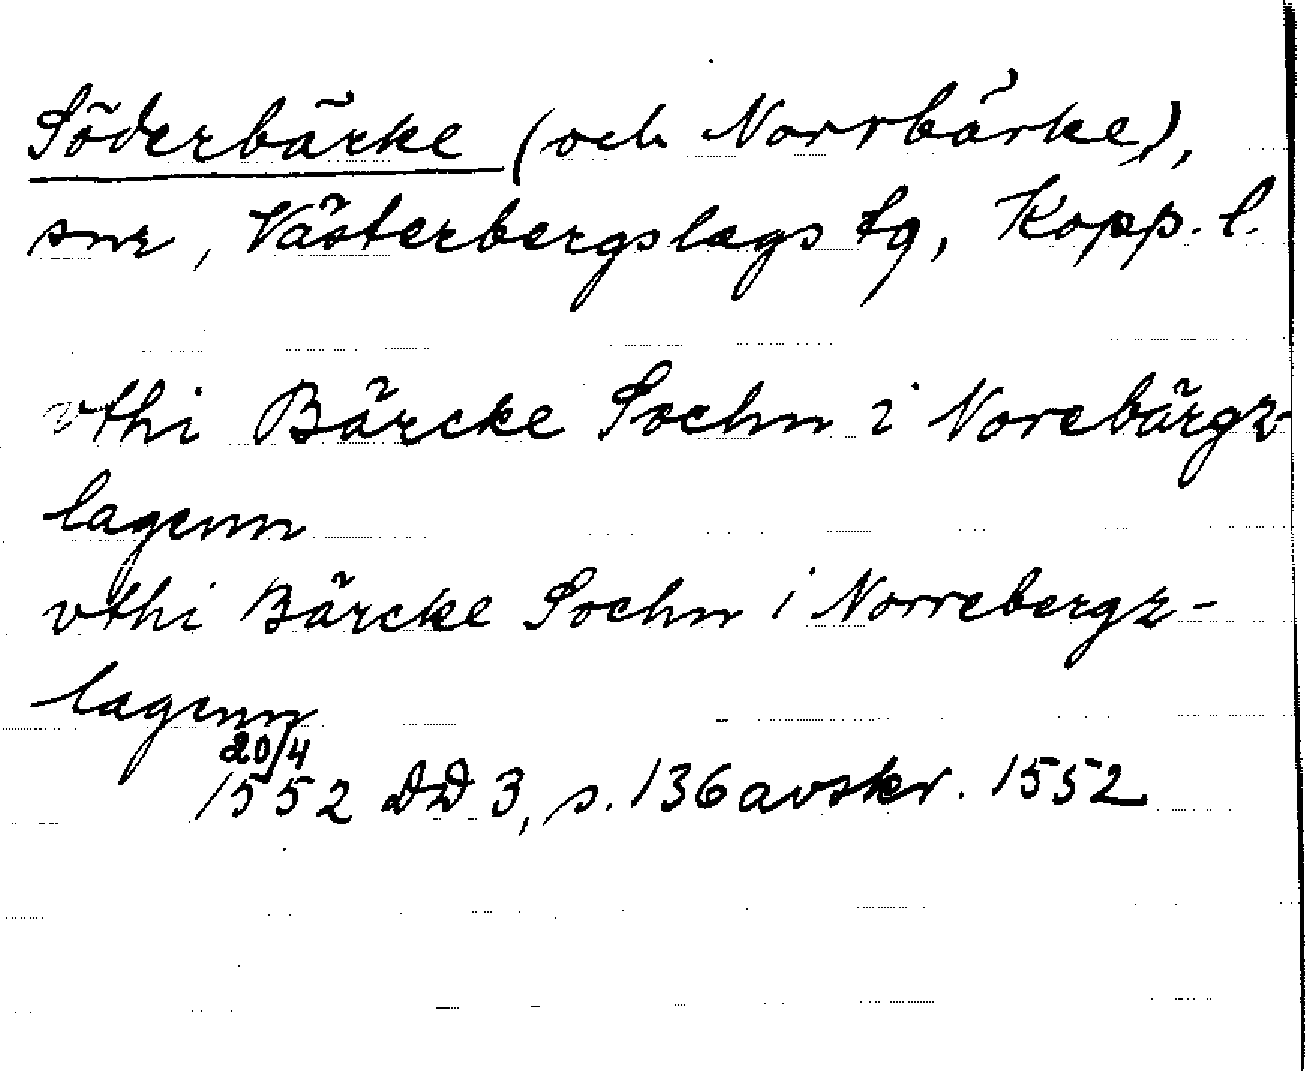 Söderbärke (och Norrbärke),
snr, Västerbergslags tg, Kopp. l.
vthi Bärcke Sochn i Norebärgz-
lagenn
vthi Bärcke Sochn i Norrebergz-
lagenn
20/4
1552 DD 3, s. 136 avskr. 1552